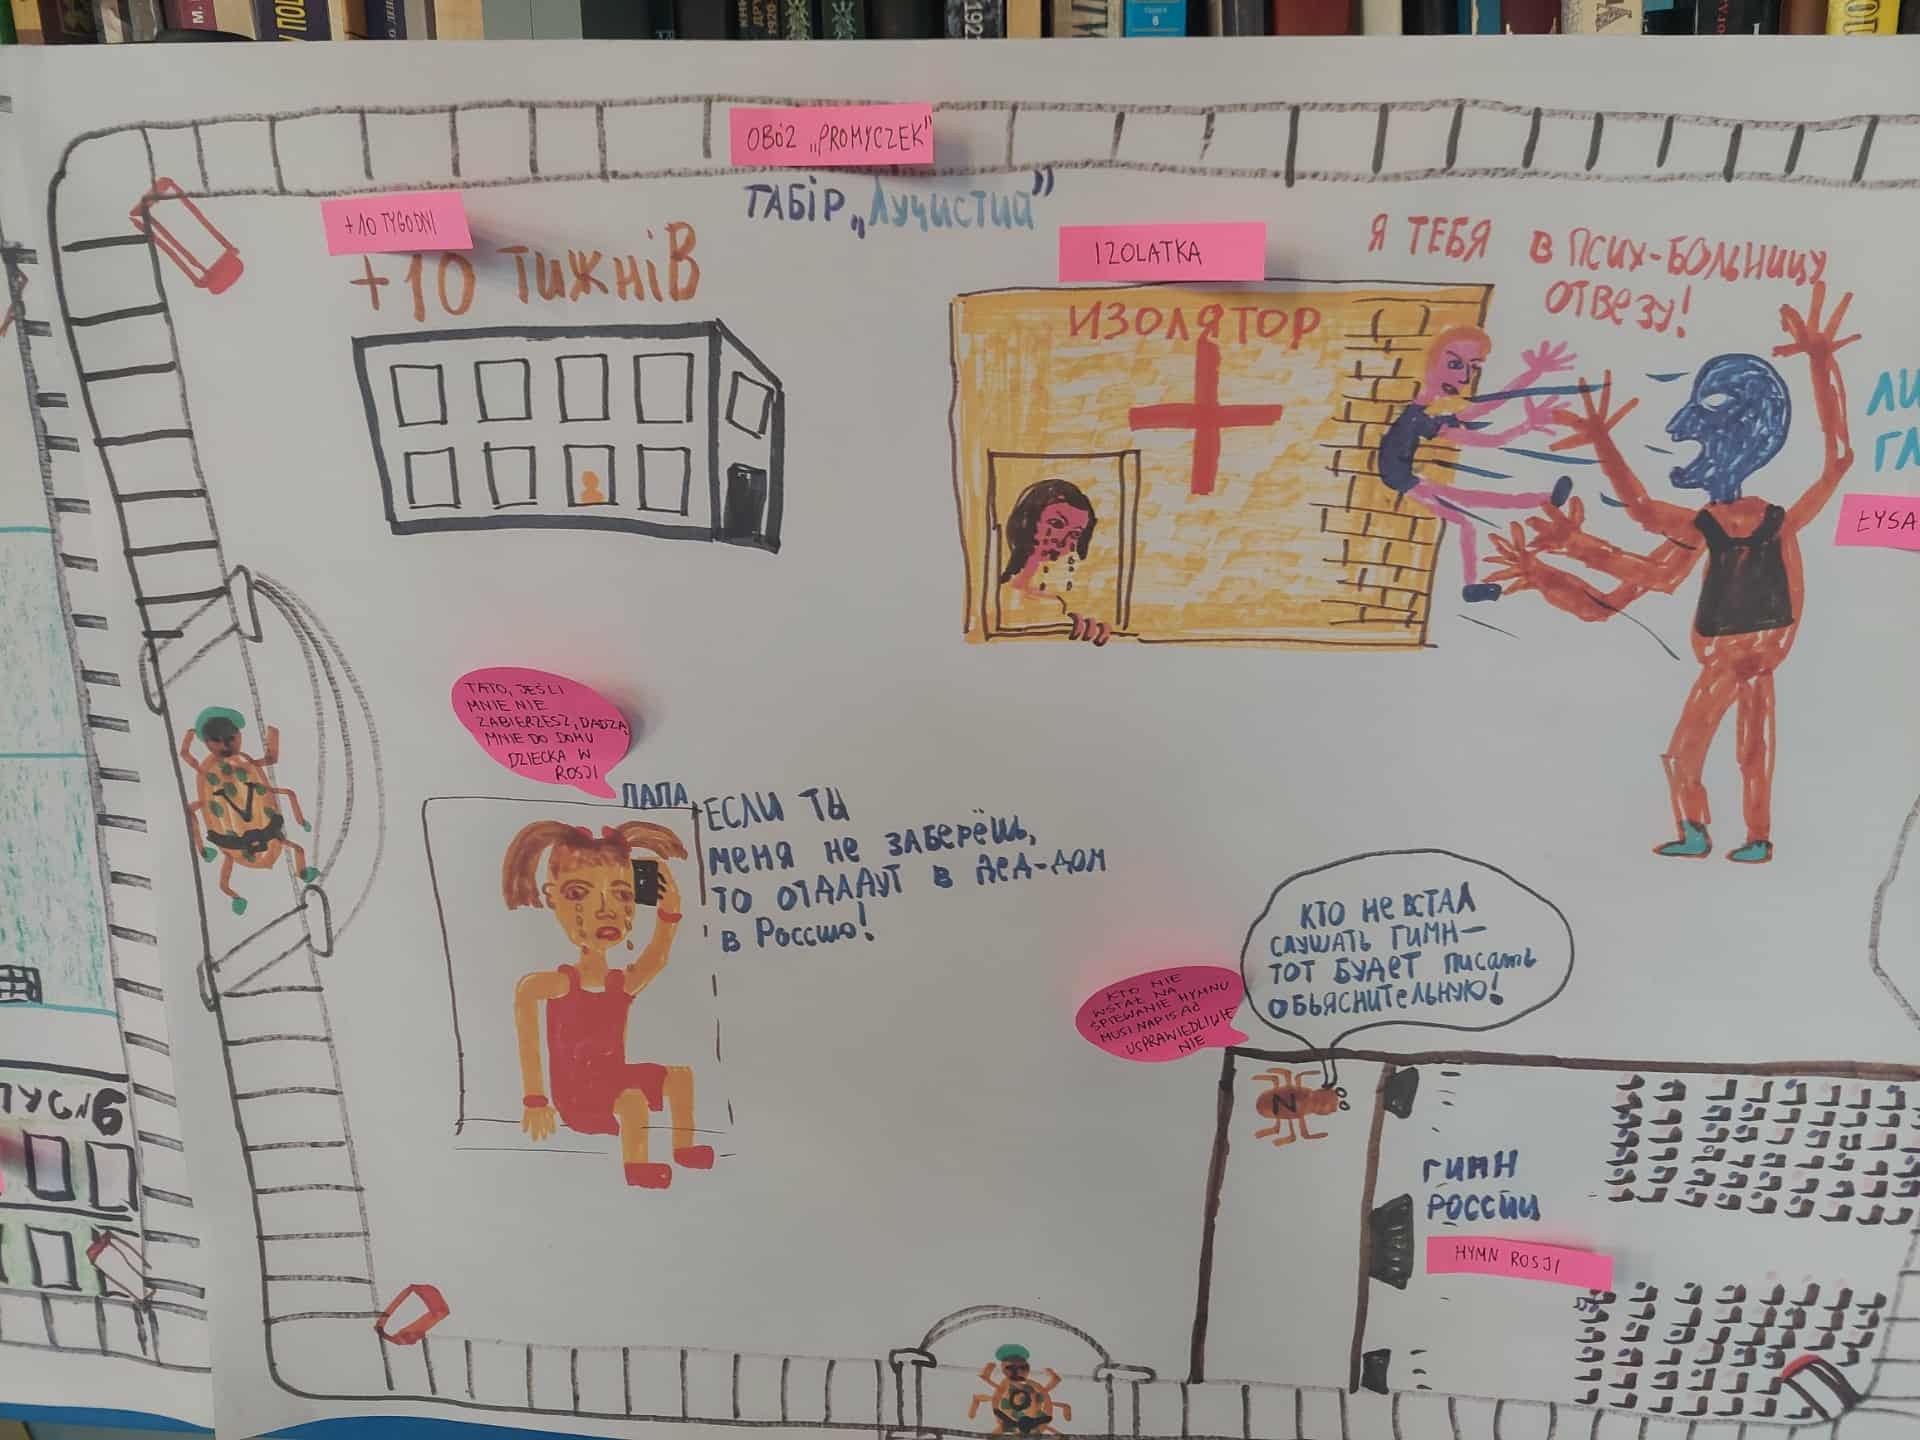 OBÓZ „PROMYCZEK"
ТАБІР „Лучистий"
+10 TYGODNI
+10 ТИЖНІВ
IZOLATKA
ИЗОЛЯТОР
Я ТЕБЯ В ПСИХ-БОЛЬНИЦУ
ОТВЕЗУ!
ŁYSA
TATO, JEŚLI
MNIE NIE
ZABIERZESZ, DADZĄ
MNIE DO DOMU
DZIECKA W
ROSJI
ПАПА, ЕСЛИ ТЫ
МЕНЯ НЕ ЗАБЕРЁШЬ,
ТО ОТДАДУТ В ДЕД-ДОМ
В Россию!
V
КТО НЕ ВСТАЛ
СЛУШАТЬ ГИМН—
ТОТ БУДЕТ писать
ОБЬЯСНИТЕЛЬНУЮ!
KTO NIE
WSTAŁ NA
ŚPIEWANIE HYMNU
MUSI NAPISAĆ
USPRAWIEDLIWIE
NIE
Z
ГИМН
РОССИИ
HYMN ROSJI
O